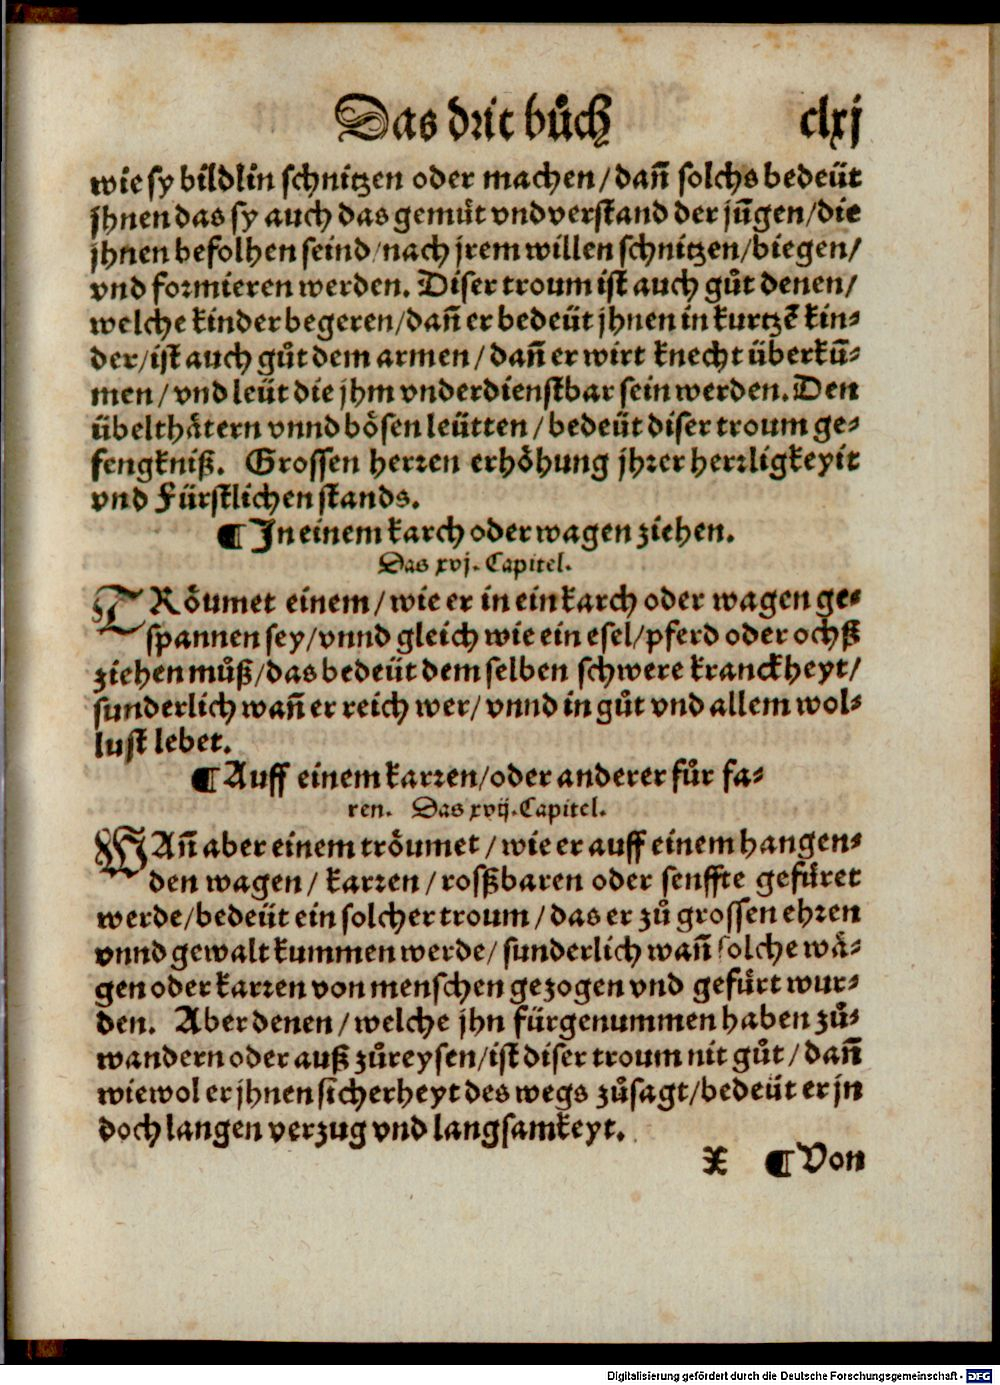 Das drit bůch clxj
wie sy bildlin schnitzen oder machen/dañ solchs bedeüt
jhnen das sy auch das gemůt vnd verstand der jũgen/die
jhnen befolhen seind/nach jrem willen schnitzen/biegen/
vnd formieren werden. Diser troum ist auch gůt denen/
welche kinder begeren/dañ er bedeüt jhnen in kurtzẽ kin-
der/ist auch gůt dem armen/dañ er wirt knecht überkũ-
men/vnd leüt die jhm vnderdienstbar sein werden. Den
übelthåtern vnnd bösen leütten/bedeüt diser troum ge-
fengkniß. Grossen herren erhöhung jhrer herrligkeyit
vnd Fürstlichen stands.
¶ In einem karch oder wagen ziehen.
Das xvj. Capitel.
TRöumet einem/wie er in ein karch oder wagen ge-
spannen sey/vnnd gleich wie ein esel/pferd oder ochß
ziehen můß/das bedeüt dem selben schwere kranckheyt/
sunderlich wañ er reich wer/vnnd in gůt vnd allem wol-
lust lebet.
¶ Auff einem karren/oder anderer fůr fa-
ren. Das xvij. Capitel.
WAñ aber einem tröumet/wie er auff einem hangen-
den wagen/karren/roßbaren oder senffte gefüret
werde/bedeüt ein solcher troum/das er zů grossen ehren
vnnd gewalt kummen werde/sunderlich wañ solche wå-
gen oder karren von menschen gezogen vnd gefůrt wur-
den. Aber denen/welche jhn fürgenummen haben zů-
wandern oder auß zůreysen/ist diser troum nit gůt/dañ
wiewol er jhnen sicherheyt des wegs zůsagt/bedeüt er jn
doch langen verzug vnd langsamkeyt.
X ¶ Von
Digitalisierung gefördert durch die Deutsche Forschungsgemeinschaft - DFG